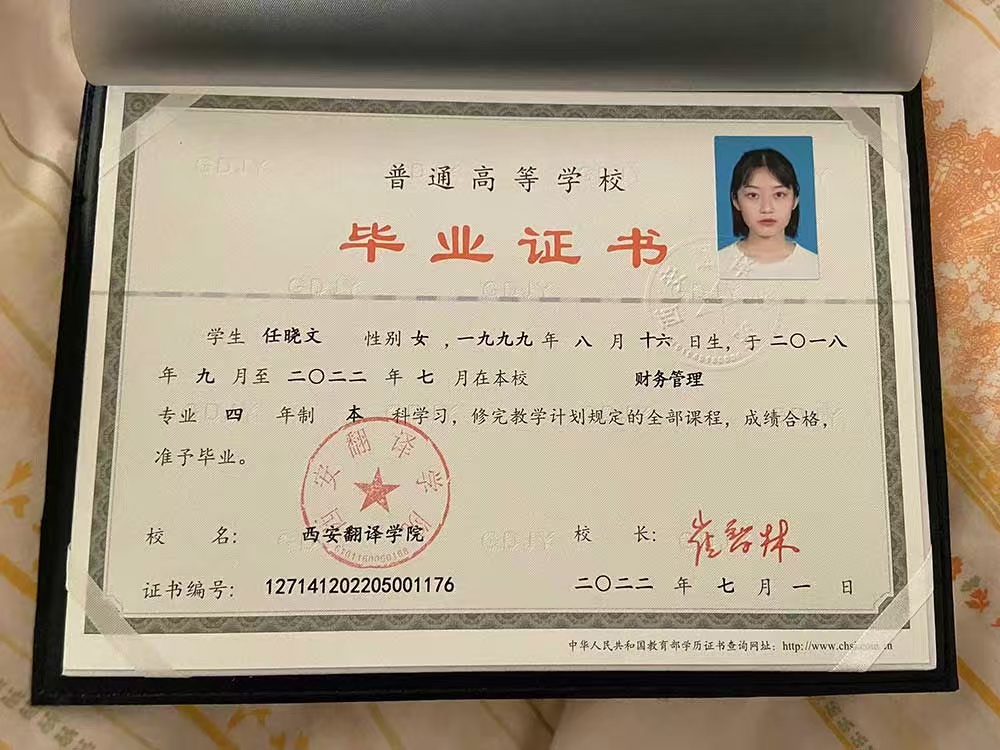 普通高等学校
毕业证书
GDJY
GDJY GDJY GDJY
学生 任晓文 性别 女 ,一九九九 年 八 月 十六 日生, 于 二〇一八
年 九 月至 二〇二二 年 七 月在本校 财务管理
专业 四 年制 本 科学习, 修完教学计划规定的全部课程, 成绩合格,
准予毕业。
西安翻译学院
校 名: 西安翻译学院 校 长: 崔智林
GDJY
证书编号: 127141202205001176 二〇二二 年 七 月 一 日
中华人民共和国教育部学历证书查询网址: http://www.chsi.com.cn